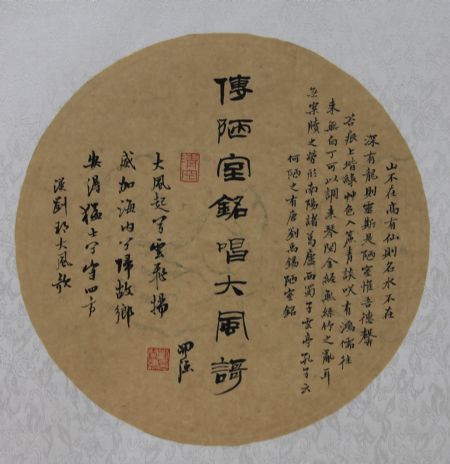 山不在高有仙則名水不在
深有龍則靈斯是陋室惟吾德馨
苔痕上階綠艸色入簾青談咲有鴻儒往
來無白丁可以調素琴閱金經無絲竹之亂耳
無案牘之勞形南陽諸葛廬西蜀子雲亭孔子云
何陋之有唐劉禹錫陋室銘
傳陋室銘唱大風謌
大風起兮雲飛揚
威加海內兮歸故鄉
安得猛士兮守四方
漢劉邦大風歌